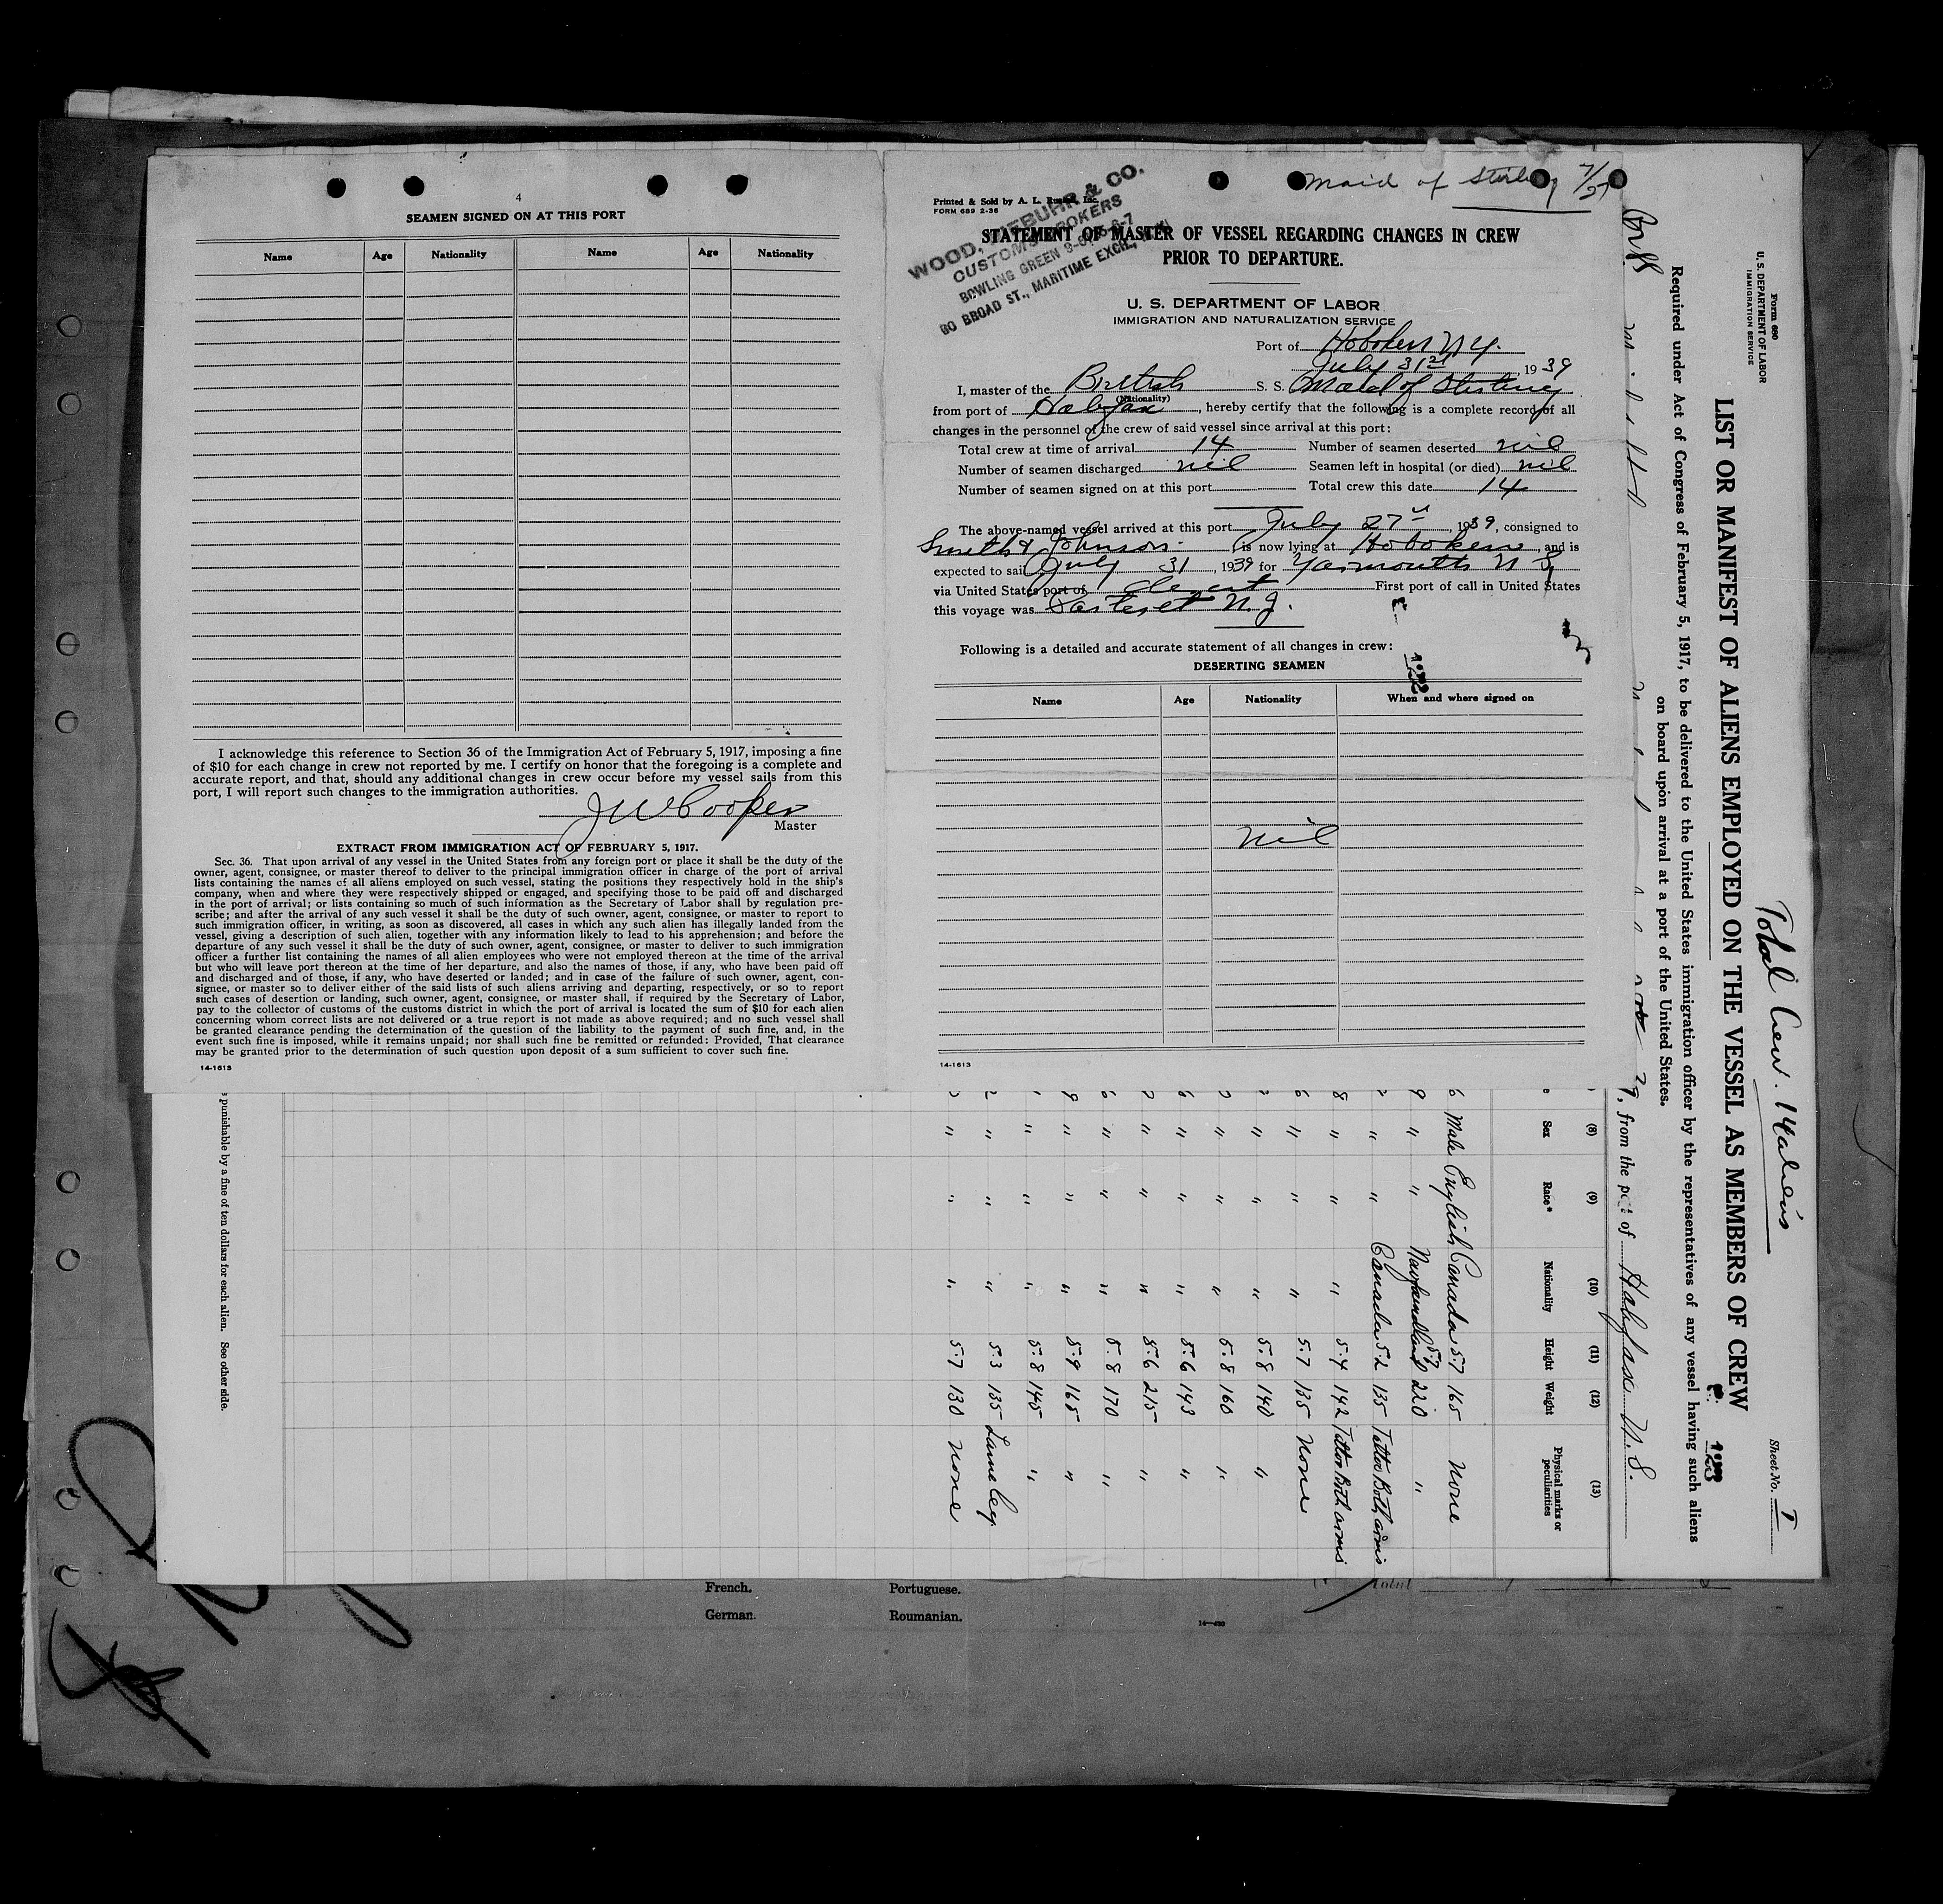 4
SEAMEN SIGNED ON AT THIS PORT
Name Age Nationality Name Age Nationality
I acknowledge this reference to Section 36 of the Immigration Act of February 5, 1917, imposing a fine
of $10 for each change in crew not reported by me. I certify on honor that the foregoing is a complete and
accurate report, and that, should any additional changes in crew occur before my vessel sails from this
port, I will report such changes to the immigration authorities.
J W Cooper
Master
EXTRACT FROM IMMIGRATION ACT OF FEBRUARY 5, 1917.
Sec. 36. That upon arrival of any vessel in the United States from any foreign port or place it shall be the duty of the
owner, agent, consignee, or master thereof to deliver to the principal immigration officer in charge of the port of arrival
lists containing the names of all aliens employed on such vessel, stating the positions they respectively hold in the ship's
company, when and where they were respectively shipped or engaged, and specifying those to be paid off and discharged
in the port of arrival; or lists containing so much of such information as the Secretary of Labor shall by regulation pre-
scribe; and after the arrival of any such vessel it shall be the duty of such owner, agent, consignee, or master to report to
such immigration officer, in writing, as soon as discovered, all cases in which any such alien has illegally landed from the
vessel, giving a description of such alien, together with any information likely to lead to his apprehension; and before the
departure of any such vessel it shall be the duty of such owner, agent, consignee, or master to deliver to such immigration
officer a further list containing the names of all alien employees who were not employed thereon at the time of the arrival
but who will leave port thereon at the time of her departure, and also the names of those, if any, who have been paid off
and discharged and of those, if any, who have deserted or landed; and in case of the failure of such owner, agent, con-
signee, or master so to deliver either of the said lists of such aliens arriving and departing, respectively, or so to report
such cases of desertion or landing, such owner, agent, consignee, or master shall, if required by the Secretary of Labor,
pay to the collector of customs of the customs district in which the port of arrival is located the sum of $10 for each alien
concerning whom correct lists are not delivered or a true report is not made as above required; and no such vessel shall
be granted clearance pending the determination of the question of the liability to the payment of such fine, and, in the
event such fine is imposed, while it remains unpaid; nor shall such fine be remitted or refunded: Provided, That clearance
may be granted prior to the determination of such question upon deposit of a sum sufficient to cover such fine.
14-1613
Maid of Stirling 7/27
Printed & Sold by A. L. Russell, Inc.
FORM 689 2-36
WOOD, & CO.
CUSTOMS BROKERS
BOWLING GREEN
80 BROAD ST., MARITIME EXCH.
STATEMENT OF MASTER OF VESSEL REGARDING CHANGES IN CREW
PRIOR TO DEPARTURE.
U. S. DEPARTMENT OF LABOR
IMMIGRATION AND NATURALIZATION SERVICE
Port of Hoboken N.Y.
July 31st, 1939
I, master of the British S. S. Maid of Stirling
(Nationality)
from port of Halifax, hereby certify that the following is a complete record of all
changes in the personnel of the crew of said vessel since arrival at this port:
Total crew at time of arrival 14 Number of seamen deserted nil
Number of seamen discharged nil Seamen left in hospital (or died) nil
Number of seamen signed on at this port Total crew this date 14
The above-named vessel arrived at this port July 27th, 1939, consigned to
Smith & Johnson, is now lying at Hoboken, and is
expected to sail July 31, 1939 for Yarmouth N S,
via United States port of direct First port of call in United States
this voyage was Carteret N.J.
Following is a detailed and accurate statement of all changes in crew:
DESERTING SEAMEN
Name Age Nationality When and where signed on
nil
14-1613
Form 680
U. S. DEPARTMENT OF LABOR
IMMIGRATION SERVICE
Total Crew. 14 aliens
Sheet No. 1
LIST OR MANIFEST OF ALIENS EMPLOYED ON THE VESSEL AS MEMBERS OF CREW
Required under Act of Congress of February 5, 1917, to be delivered to the United States immigration officer by the representatives of any vessel having such aliens
on board upon arrival at a port of the United States.
39, from the port of Halifax N.S.
(8) (9) (10) (11) (12) (13)
Sex Race* Nationality Height Weight Physical marks or peculiarities
6 Male English Canada 5.7 165 None
9 " " Newfoundland 5.7 220 "
2 " " Canada 5.2 135 Tattoo Both arms
8 " " " 5.4 142 Tattoo Both arms
6 " " " 5.7 135 None
2 " " " 5.8 140 "
2 " " " 5.8 160 "
6 " " " 5.6 143 "
2 " " " 5.6 215 "
6 " " " 5.8 170 "
9 " " " 5.9 165 "
1 " " " 5.8 145 "
2 " " " 5.3 135 Lame leg
" " " 5.7 130 None
s punishable by a fine of ten dollars for each alien. See other side.
French. Portuguese.
German. Roumanian.
14—430
Total